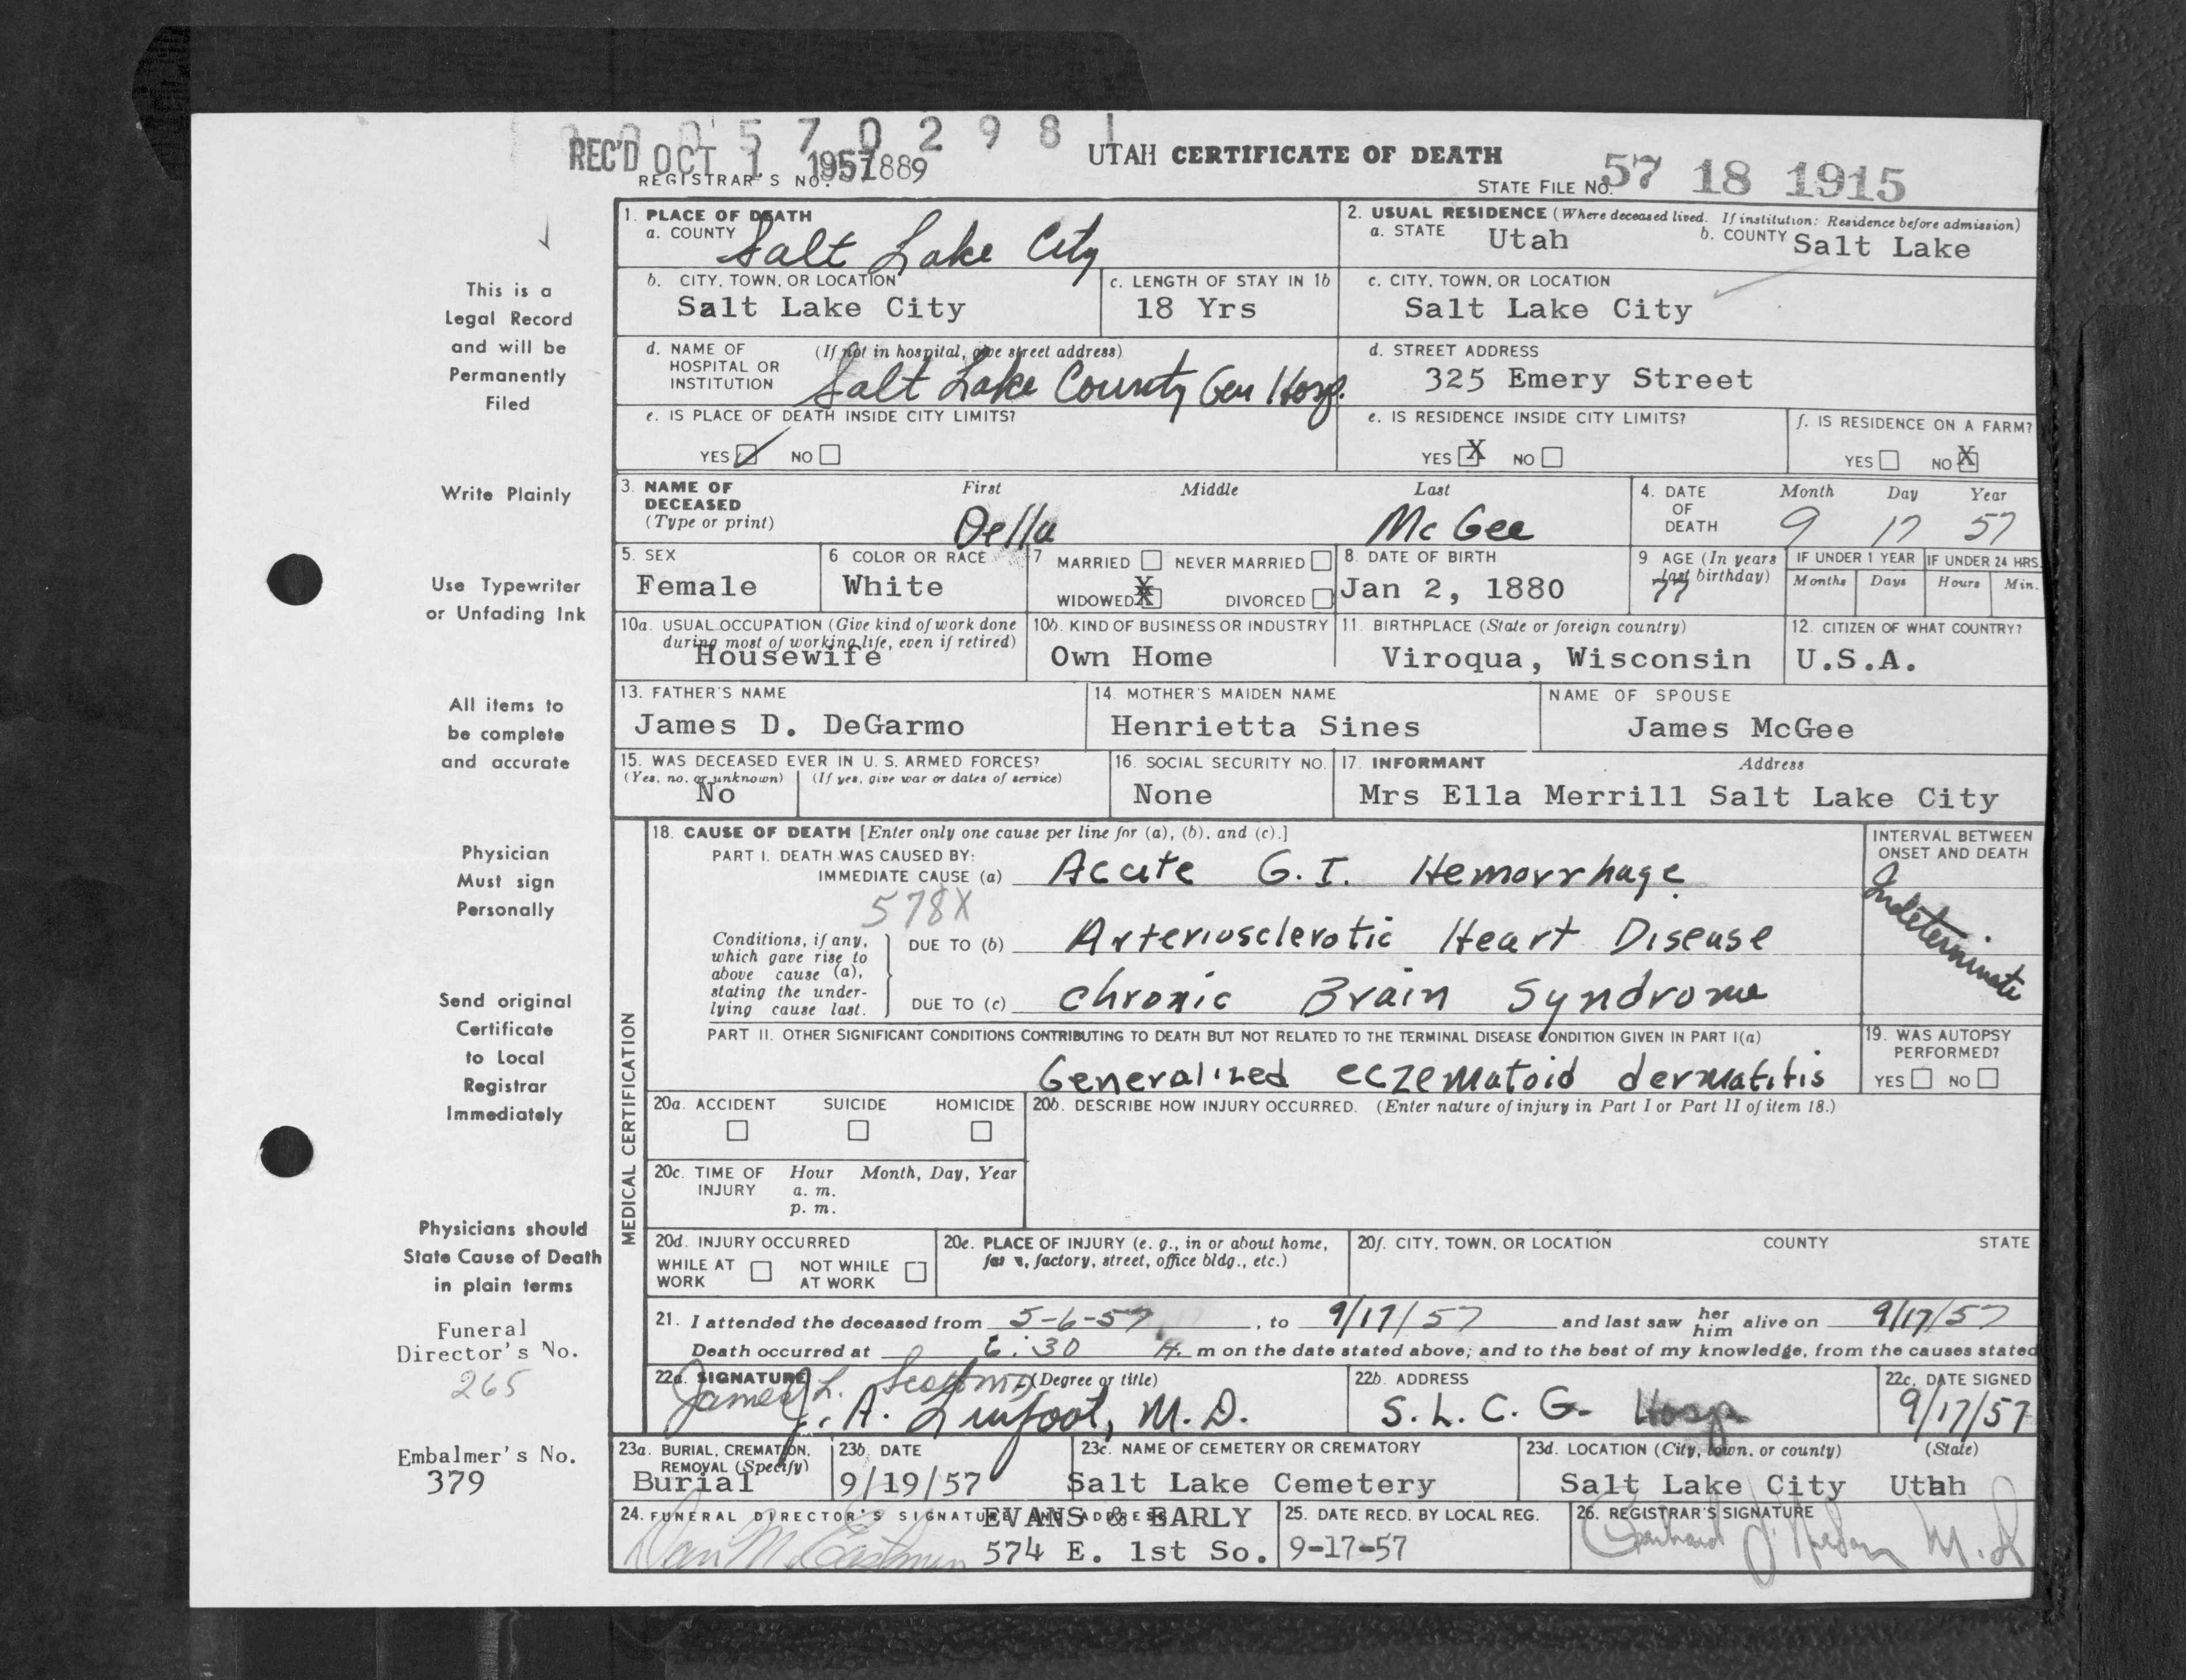 0 0 0 5 7 0 2 9 8 1
REC'D OCT 1 1957 1889
REGISTRAR'S NO.
UTAH CERTIFICATE OF DEATH
STATE FILE NO. 57 18 1915
1. PLACE OF DEATH
a. COUNTY Salt Lake City
2. USUAL RESIDENCE (Where deceased lived. If institution: Residence before admission)
a. STATE Utah b. COUNTY Salt Lake
b. CITY, TOWN, OR LOCATION Salt Lake City
c. LENGTH OF STAY IN 1b 18 Yrs
c. CITY, TOWN, OR LOCATION Salt Lake City
d. NAME OF HOSPITAL OR INSTITUTION (If not in hospital, give street address) Salt Lake County Gen Hosp.
d. STREET ADDRESS 325 Emery Street
e. IS PLACE OF DEATH INSIDE CITY LIMITS?
YES ✓ NO
e. IS RESIDENCE INSIDE CITY LIMITS?
YES X NO
f. IS RESIDENCE ON A FARM?
YES NO X
3. NAME OF DECEASED (Type or print) First Middle Last
Della McGee
4. DATE OF DEATH Month Day Year
9 17 57
5. SEX Female
6. COLOR OR RACE White
7 MARRIED NEVER MARRIED
WIDOWED X DIVORCED
8. DATE OF BIRTH Jan 2, 1880
9 AGE (In years last birthday) 77
IF UNDER 1 YEAR Months Days
IF UNDER 24 HRS. Hours Min.
10a. USUAL OCCUPATION (Give kind of work done during most of working life, even if retired) Housewife
10b. KIND OF BUSINESS OR INDUSTRY Own Home
11. BIRTHPLACE (State or foreign country) Viroqua, Wisconsin
12. CITIZEN OF WHAT COUNTRY? U.S.A.
13. FATHER'S NAME James D. DeGarmo
14. MOTHER'S MAIDEN NAME Henrietta Sines
NAME OF SPOUSE James McGee
15. WAS DECEASED EVER IN U. S. ARMED FORCES?
(Yes, no, or unknown) No (If yes, give war or dates of service)
16. SOCIAL SECURITY NO. None
17. INFORMANT Address
Mrs Ella Merrill Salt Lake City
MEDICAL CERTIFICATION
18. CAUSE OF DEATH [Enter only one cause per line for (a), (b), and (c).]
INTERVAL BETWEEN ONSET AND DEATH
Indeterminate
PART I. DEATH WAS CAUSED BY:
IMMEDIATE CAUSE (a) Acute G.I. Hemorrhage
578X
Conditions, if any, which gave rise to above cause (a), stating the underlying cause last.
DUE TO (b) Arteriosclerotic Heart Disease
DUE TO (c) Chronic Brain Syndrome
PART II. OTHER SIGNIFICANT CONDITIONS CONTRIBUTING TO DEATH BUT NOT RELATED TO THE TERMINAL DISEASE CONDITION GIVEN IN PART I(a)
Generalized eczematoid dermatitis
19. WAS AUTOPSY PERFORMED?
YES NO
20a. ACCIDENT SUICIDE HOMICIDE
20b. DESCRIBE HOW INJURY OCCURRED. (Enter nature of injury in Part I or Part II of item 18.)
20c. TIME OF INJURY Hour Month, Day, Year
a. m.
p. m.
20d. INJURY OCCURRED
WHILE AT WORK NOT WHILE AT WORK
20e. PLACE OF INJURY (e. g., in or about home, farm, factory, street, office bldg., etc.)
20f. CITY, TOWN, OR LOCATION COUNTY STATE
21. I attended the deceased from 5-6-57, to 9/17/57 and last saw her him alive on 9/17/57
Death occurred at 6:30 A. m on the date stated above; and to the best of my knowledge, from the causes stated
22a. SIGNATURE (Degree or title)
James L.
J. A. Linfoot, M.D.
22b. ADDRESS S. L. C. G. Hosp
22c. DATE SIGNED 9/17/57
23a. BURIAL, CREMATION, REMOVAL (Specify) Burial
23b. DATE 9/19/57
23c. NAME OF CEMETERY OR CREMATORY Salt Lake Cemetery
23d. LOCATION (City, town, or county) (State)
Salt Lake City Utah
24. FUNERAL DIRECTOR'S SIGNATURE AND ADDRESS
EVANS & EARLY
574 E. 1st So.
25. DATE RECD. BY LOCAL REG. 9-17-57
26. REGISTRAR'S SIGNATURE
M.D.
This is a
Legal Record
and will be
Permanently
Filed
Write Plainly
Use Typewriter
or Unfading Ink
All items to
be complete
and accurate
Physician
Must sign
Personally
Send original
Certificate
to Local
Registrar
Immediately
Physicians should
State Cause of Death
in plain terms
Funeral
Director's No.
265
Embalmer's No.
379